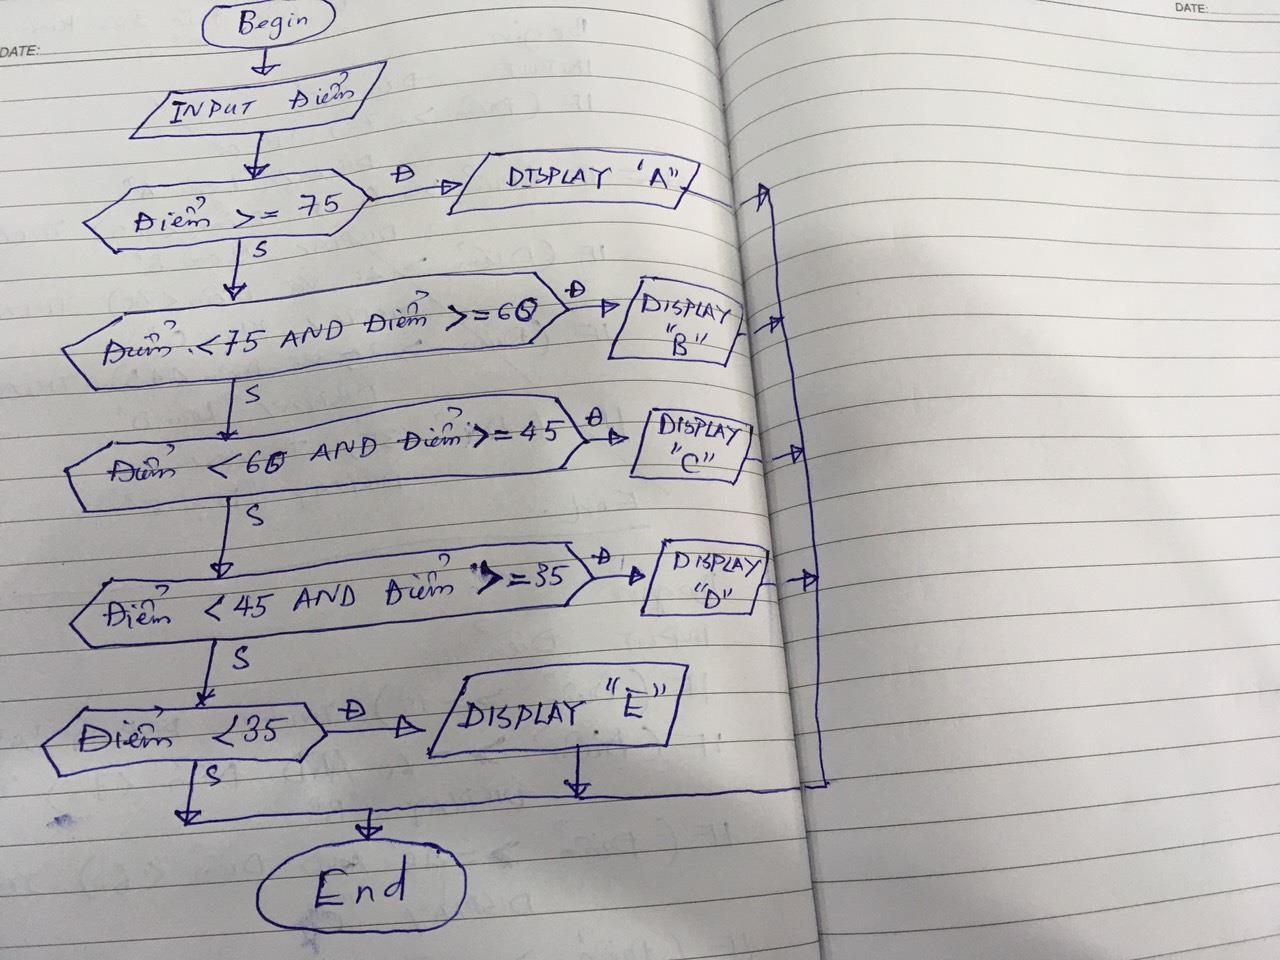 DATE:
DATE:
Begin
INPUT Điểm
Điểm >= 75
Đ
DISPLAY "A"
S
Điểm <75 AND Điểm >=60
Đ
DISPLAY
"B"
S
Điểm <60 AND Điểm >=45
Đ
DISPLAY
"C"
S
Điểm <45 AND Điểm >=35
Đ
DISPLAY
"D"
S
Điểm <35
Đ
DISPLAY "E"
S
End